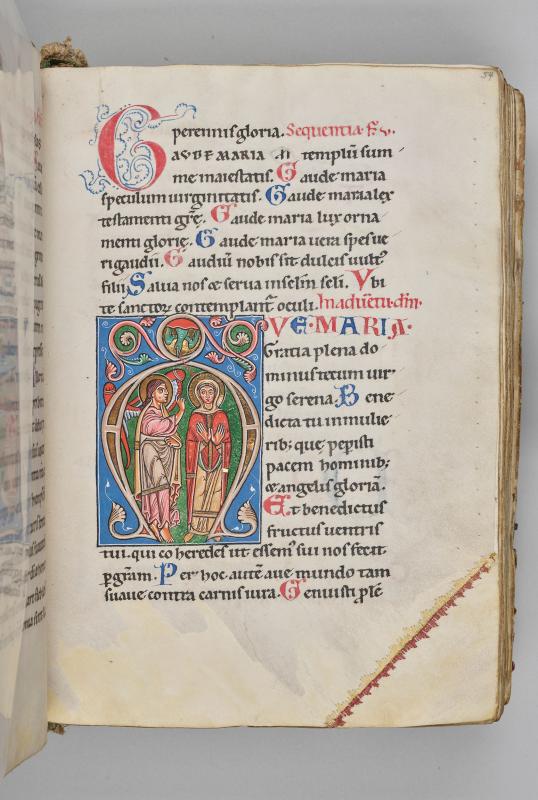 54
perennis gloria. Sequentia
GAVDE MARIA templũ sum
me maiestatis. Gaude maria
speculum uirginitatis. Gaude maria lex
testamenti grę. Gaude maria lux orna
menti glorię. Gaude maria uera spes ue
ri gaudii. Gaudiũ nobis sit dulcis uult
filii. Salua nos & serua in selin seli. Vbi
te sanctor contemplant oculi. In aduentu dñi.
AVE·MARIA·
Gratia plena do
minus tecum uir
go serena. Bene
dicta tu in mulie
rib; que pepisti
pacem hominib;
& angelis gloriã.
Et benedictus
fructus uentris
tui. qui coheredes ut essem sui nos fecit
p grãm. Per hoc autẽ aue mundo tam
suaue contra carnis iura. Genuisti plẽ